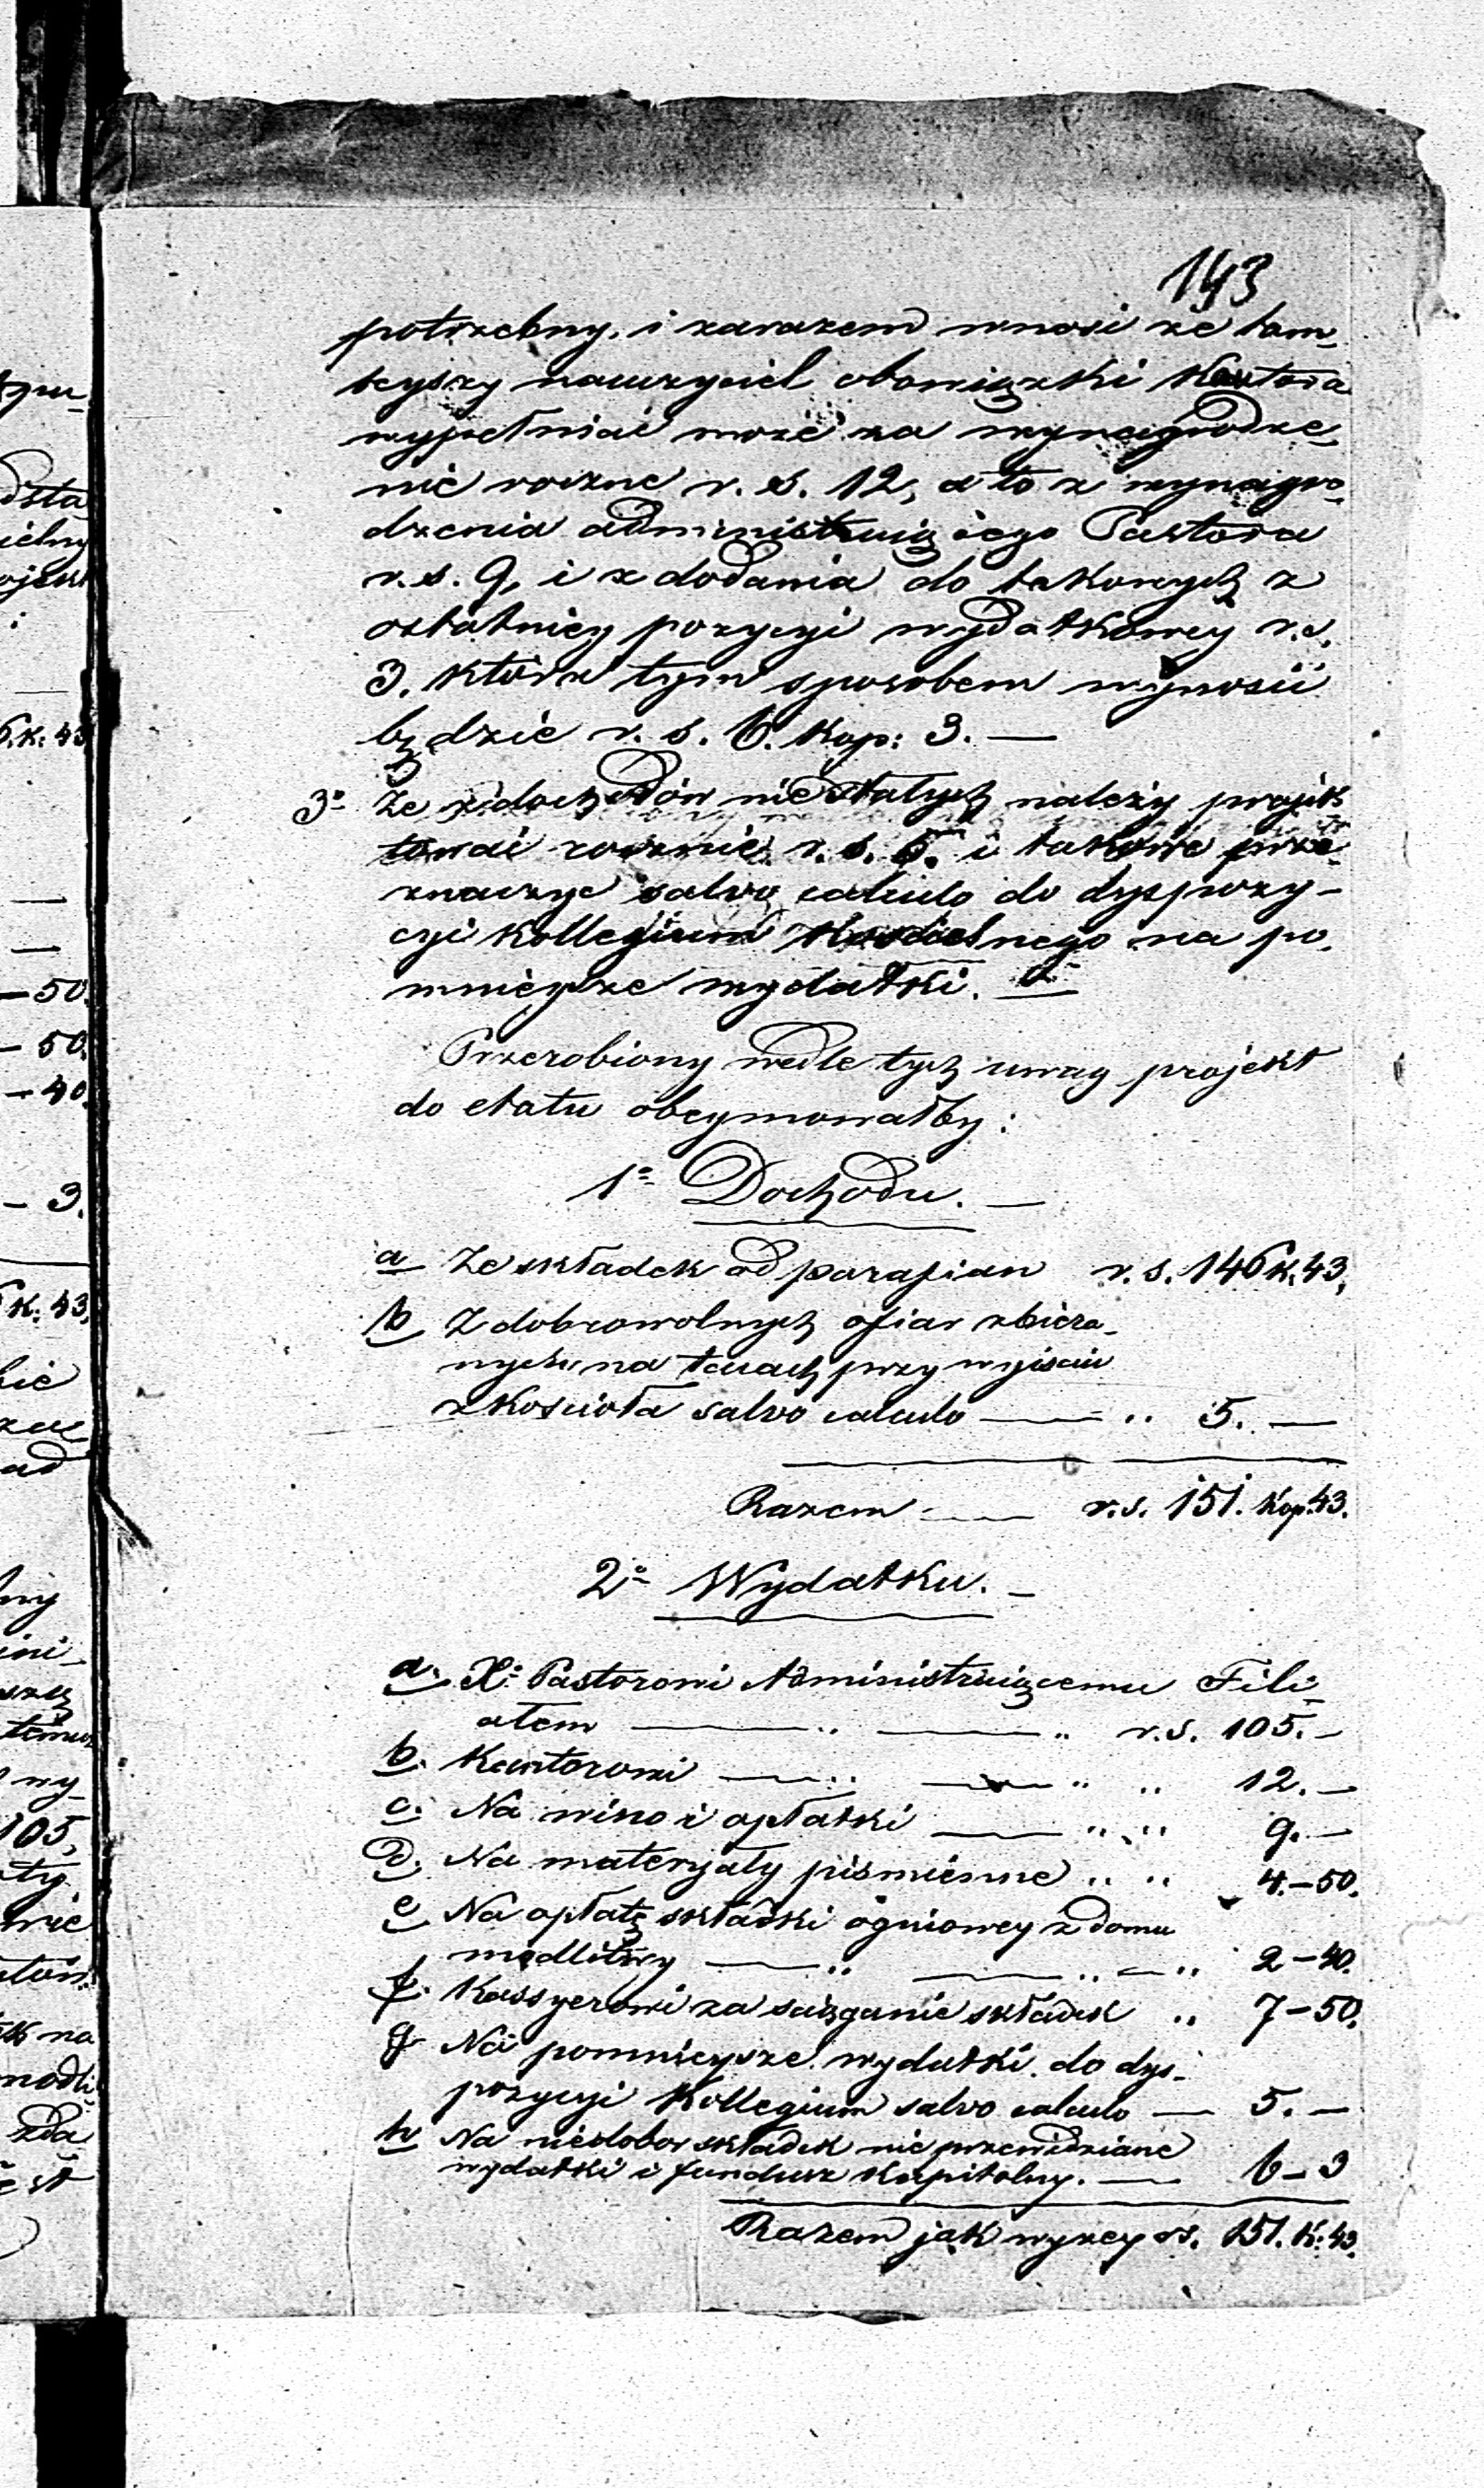 143
potrzebny, i zarazem wnosi że tam-
teyszy nauczyciel obowiązki Kantora
wypełniać może za wynagrodze-
nie roczne r. s. 12, a to z wynagro-
dzenia administruiącego Pastora
r. s. 9, i z dodania do takowych z
ostatniey pozycyi wydatkowey r. s.
3. która tym sposobem wynosić
będzie r. s. 6. Kop: 3. —
3° Że z dochodów niestałych należy projek-
tować rocznie r. s. 5. i takowe prze-
znaczyć salvo calculo do dyspozy-
cyi Kollegium Kościelnego na po-
mnieysze wydatki. —
Przerobiony wedle tych uwag projekt
do etatu obeymowałby:
1° Dochodu. —
a Ze składek od parafian r. s. 146 k. 43,
b Z dobrowolnych ofiar zbiera-
nych na tacach przy wyjściu
z Kościoła salvo calculo — „ 5. —
Razem — r. s. 151. Kop. 43.
2° Wydatku. —
a. X: Pastorowi Administruiącemu Fili-
ałem — „ — „ r. s. 105. —
b. Kantorowi — „ — „ „ 12. —
c. Na wino i opłatki — „ „ 9. —
d. Na materyały piśmienne „ „ 4. — 50.
e Na opłatę składki ogniowey z domu
modlitwy — „ — „ — „ 2 — 40.
f. Kassyerowi za ściąganie składek „ 7 — 50.
g Na pomnieysze wydatki do dys-
pozycyi Kollegium salvo calculo — 5. —
h Na niedobor składek nieprzewidziane
wydatki i fundusz Kapitalny. — 6 — 3
Razem jak wyżey rs. 151. K: 43.